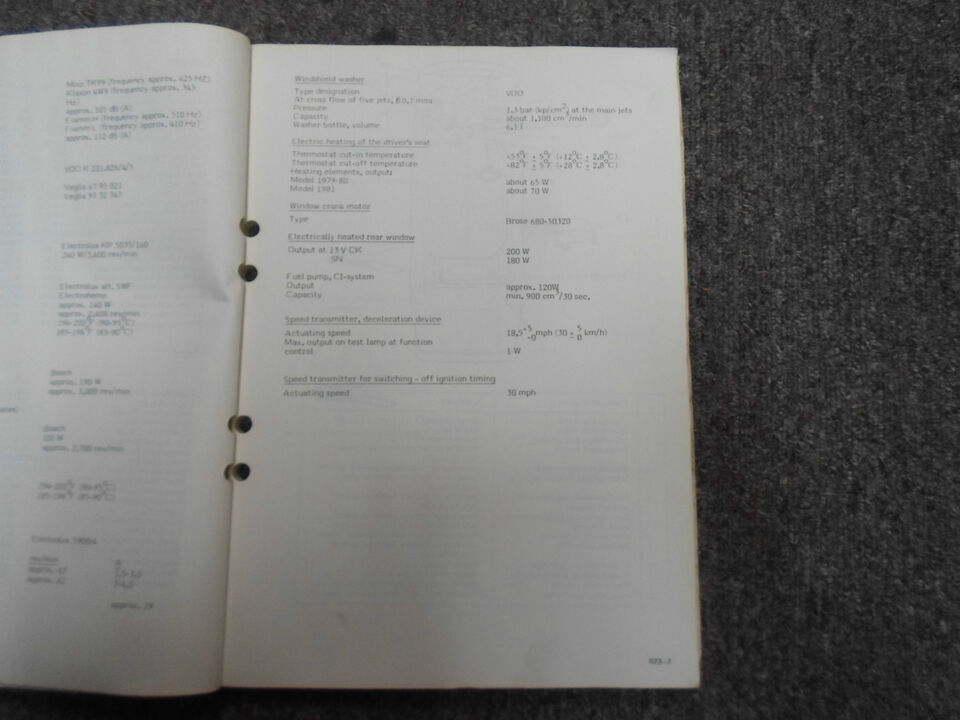 Mixo TM99 (frequency approx. 425 HZ)
Klaxon KW9 (frequency approx. 345
Hz)
approx. 105 dB (A)
Fiamm H (frequency approx. 510 Hz)
Fiamm L (frequency approx. 410 Hz)
approx. 112 dB (A)
VDO K
Veglia
Veglia
Electrolux KP 5035/160
240 W/3,600 rev/min
Electrolux alt. SWF
Electrohome
approx. 140 W
approx. 2,400 rev/min
194-202°F (90-95°C)
185-194°F (85-90°C)
Bosch
approx. 190 W
approx. 3,000 rev/min
Bosch
120 W
approx. 2,700 rev/min
194-202°F (90-95°C)
185-194°F (85-90°C)
Electrolux
rev/min A
approx.
approx.
approx. 29
Windshield washer
Type designation VDO
At cross flow of five jets, Ø 0,7 mm
Pressure 1,3 bar (kp/cm2) at the main jets
Capacity about 1,100 cm3/min
Washer bottle, volume 6,1 l
Electric heating of the driver's seat
Thermostat cut-in temperature +53°F ± 5°F (+12°C ± 2,8°C)
Thermostat cut-off temperature +82°F ± 5°F (+28°C ± 2,8°C)
Heating elements, output:
Model 1979-80 about 65 W
Model 1981 about 70 W
Window crank motor
Type Brose 680-50320
Electrically heated rear window
Output at 13 V CK 200 W
SN 180 W
Fuel pump, CI-system
Output approx. 120W
Capacity min. 900 cm3/30 sec.
Speed transmitter, deceleration device
Actuating speed 18,5 +5 -0 mph (30 ± 5 0 km/h)
Max. output on test lamp at function
control 1 W
Speed transmitter for switching - off ignition timing
Actuating speed 30 mph
023-7